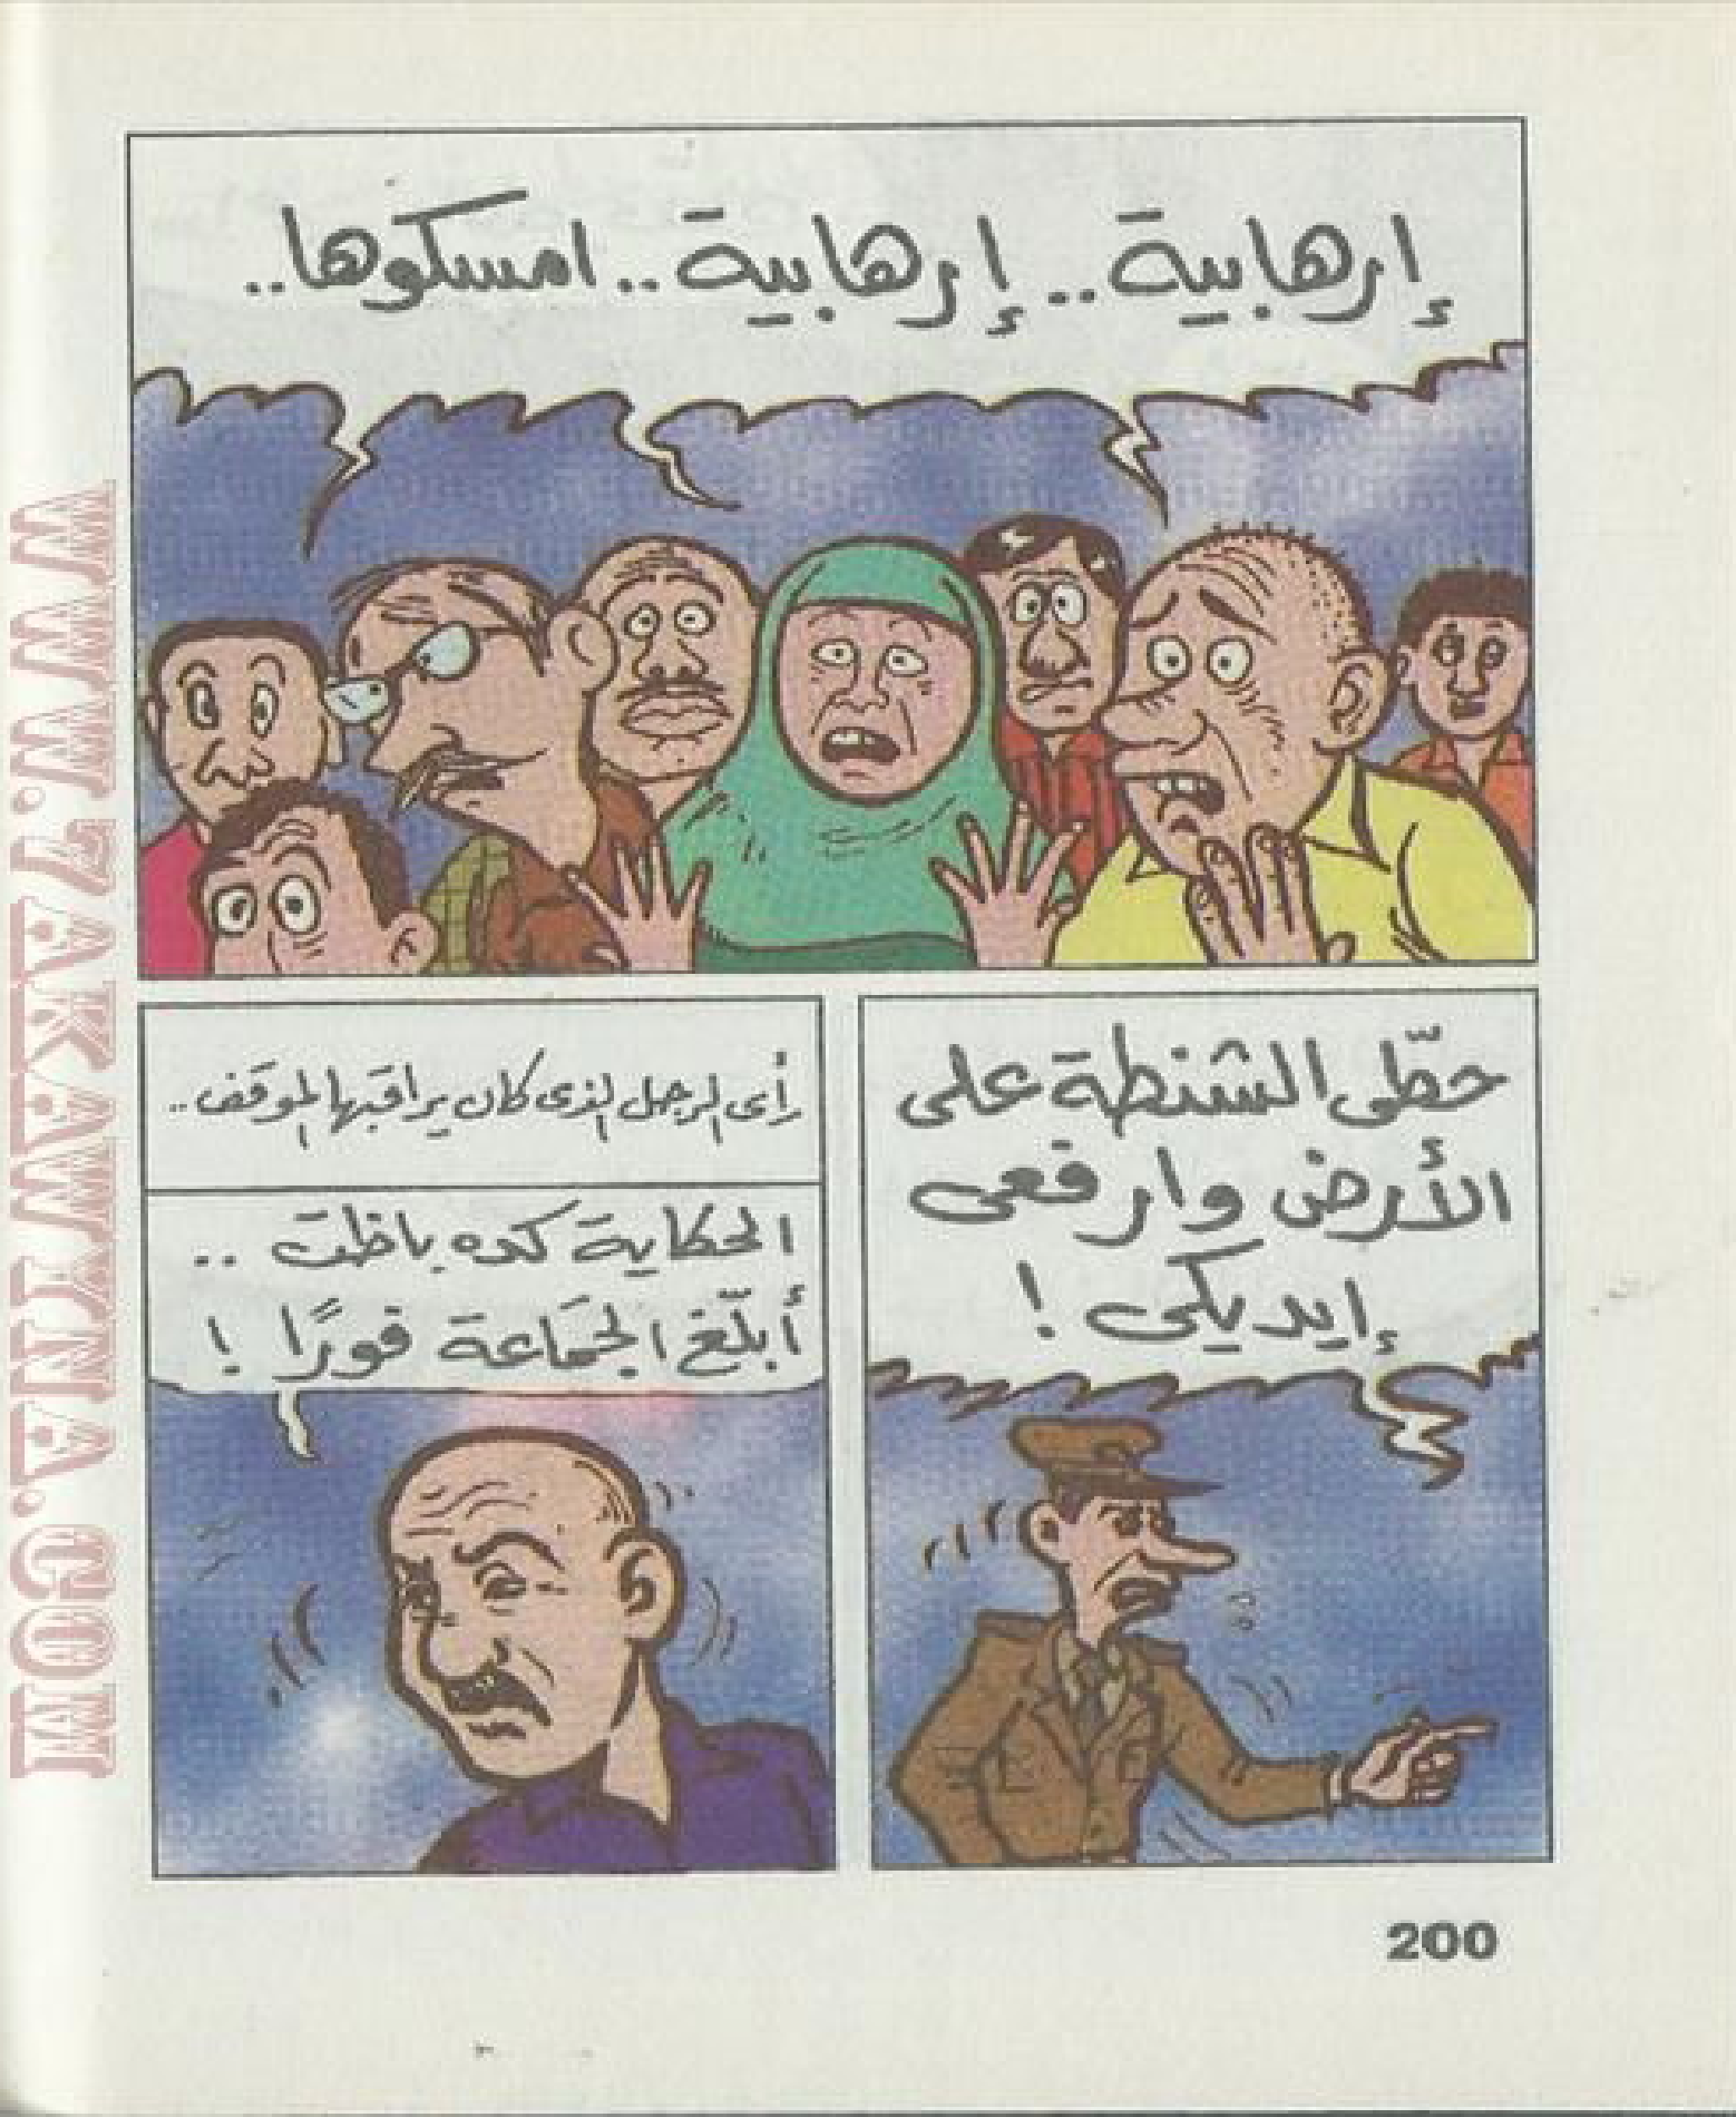 إرهابية.. إرهابية.. امسكوها..
حطّى الشنطة على
الأرض وارفعى
إيديكى !
رأى الرجل الذى كان يراقبها الموقف..
الحكاية كده باظت ..
أبلّغ الجَماعة فورًا !
200
WWW.7AKAWINA.COM